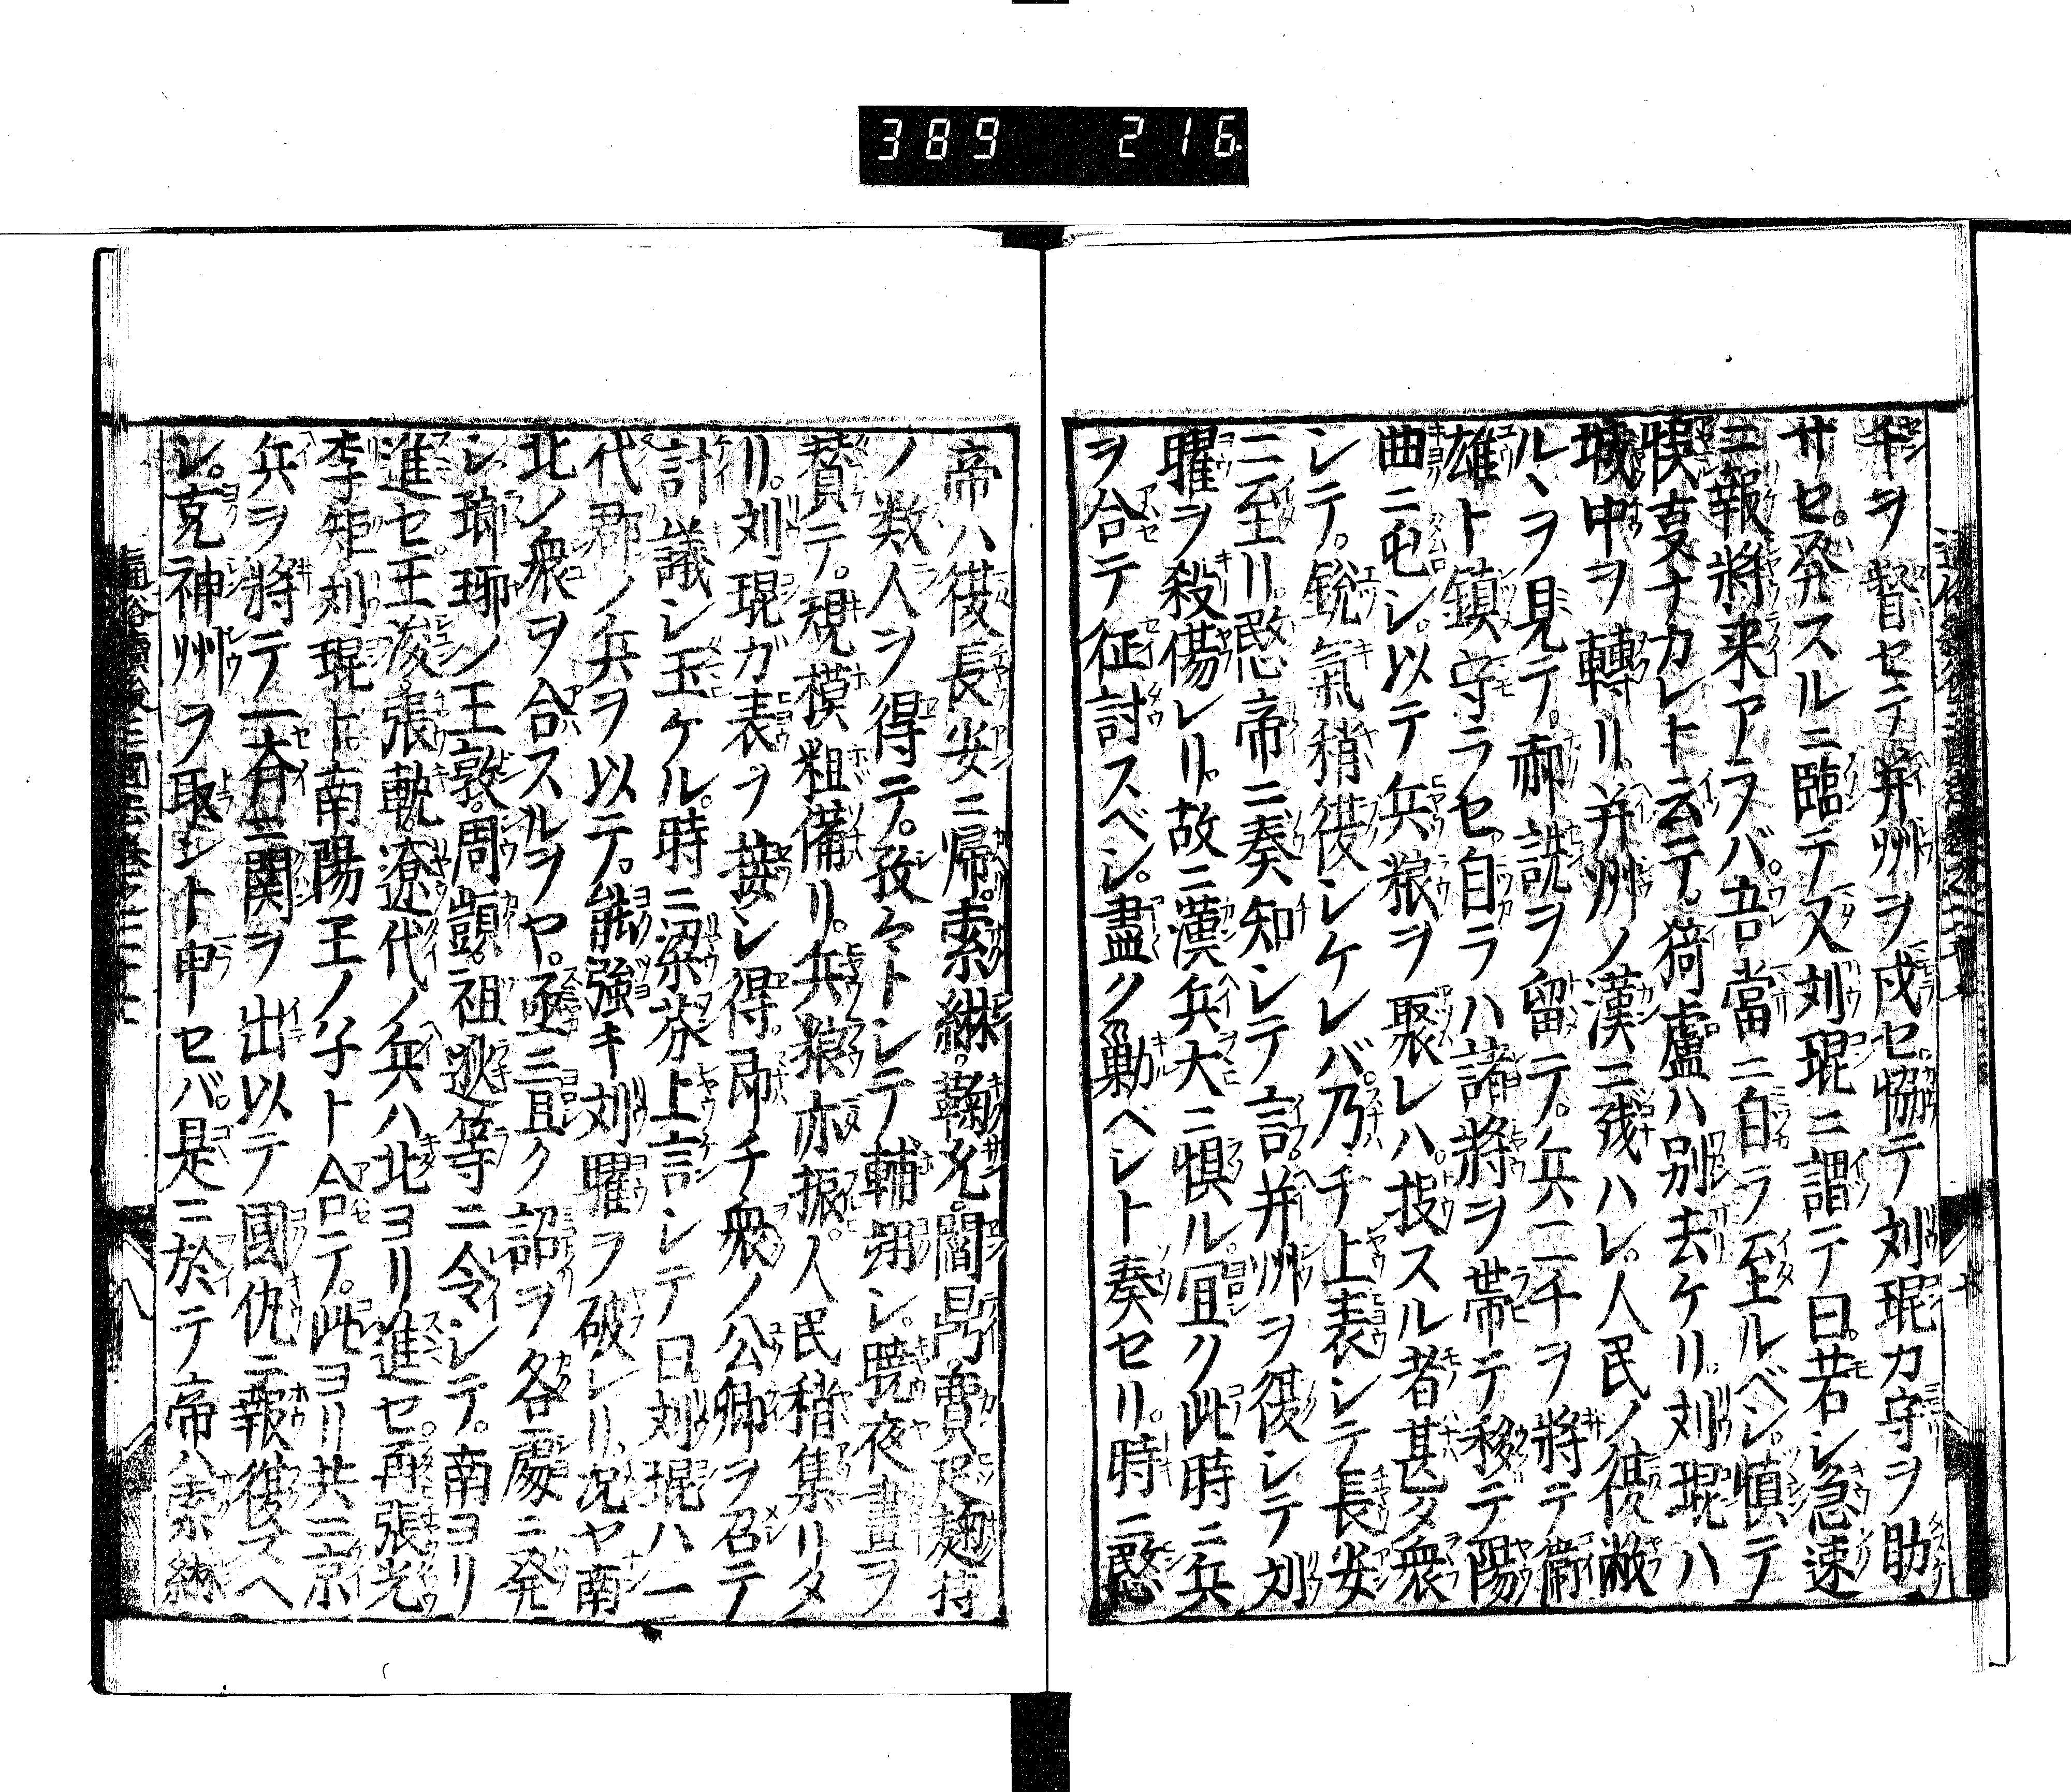 389 216
千ヲ督セテ并州ヲ戍セ協テ刘琨カ守ヲ助
サセ。発スルニ臨テ又刘琨ニ謂テ曰。若シ急速
ニ報將来アラバ。吾當ニ自ラ至ルベシ。慎テ
悞叓ナカレト云テ。猗盧ハ別去ケリ。刘琨ハ
城中ヲ轉リ。并州ノ漢ニ残ハレ。人民ノ復敝
ルヽヲ見テ。郝詵ヲ留テ。兵二千ヲ將テ
雄ト鎮守ラセ自ラハ諸將ヲ帯テ移テ陽
曲ニ屯シ。以テ兵粮ヲ聚レハ。投スル者甚タ衆
シテ。銳氣稍復シケレバ乃チ上表シテ長安
ニ至リ。愍帝ニ奏知シテ言。并州ヲ復シテ刘
曜ヲ殺傷レリ。故ニ漢兵大ニ惧ル。宜ク此時ニ兵
ヲ合テ征討スベシ。盡ク勦ベシト奏セリ。時ニ愍
帝ハ復長安ニ帰。索綝。鞠允。閻鼎。賈疋。麹持
ノ数人ヲ得テ。孜々トシテ輔翊シ。暁夜晝ヲ
賛テ。規模粗備リ。兵粮亦振。人民稍集リタ
リ。刘琨ガ表ヲ接シ得。即チ衆ノ公卿ヲ召テ
計議シ玉ケル。時ニ梁芬上言シテ曰。刘琨ハ一
代郡ノ兵ヲ以テ。能強キ刘曜ヲ破レリ。况ヤ南
北ノ衆ヲ合スルヲヤ。亟ニ宜ク詔ヲ各處ニ発
シ。瑯琊ノ王敦。周顗。祖逖等ニ令シテ。南ヨリ
進セ王浚。張軌。遼代ノ兵ハ北ヨリ進セ。再張光
李矩刘琨ト。南陽王ノ子ト合テ。此ヨリ共ニ京
兵ヲ將テ一齊ニ関ヲ出以テ國仇ニ報復スヘ
シ。克神州ヲ取ント申セバ。是ニ於テ帝ハ索綝